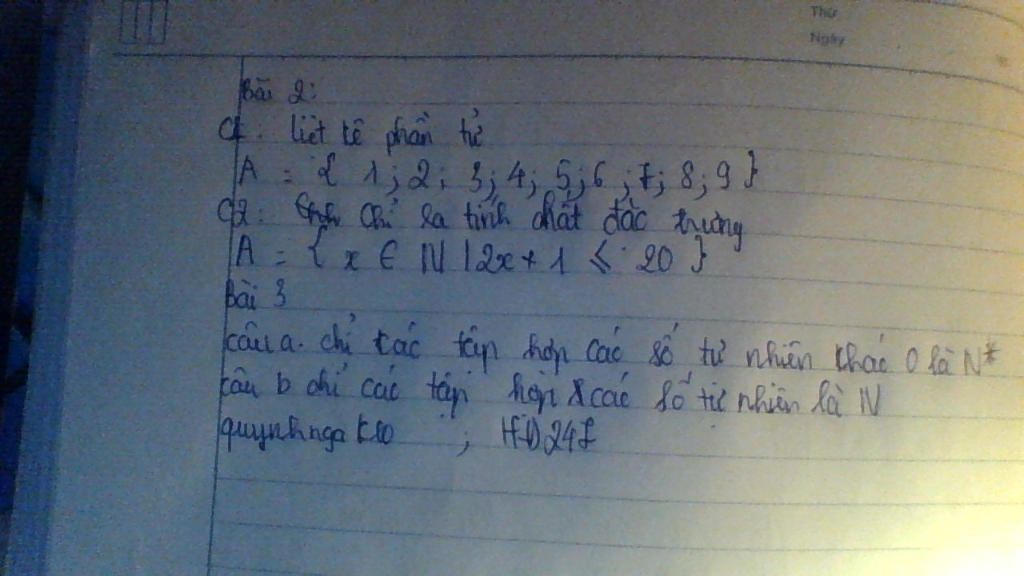 Thứ
Ngày
Bài 2:
C1. liệt kê phần tử
A = { 1; 2; 3; 4; 5; 6; 7; 8; 9 }
C2: chỉ ra tính chất đặc trưng
A = { x ∈ N | 2x + 1 ≤ 20 }
Bài 3
câu a. chỉ các tập hợp các số tự nhiên khác 0 là N*
câu b chỉ các tập hợp các số tự nhiên là N
quynhnga k10 ;